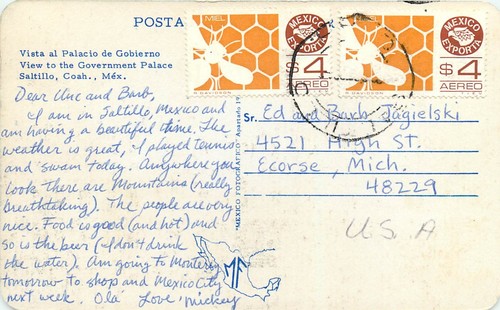 POSTA
Vista al Palacio de Gobierno
View to the Government Palace
Saltillo, Coah., Méx.
MIEL
MEXICO EXPORTA
$4
AEREO
MEXICO EXPORTA
$4
AEREO
Dear Unc and Barb,
I am in Saltillo, Mexico and
am having a beautiful time. The
weather is great, I played tennis
and swam today. Anywhere you
look there are Mountains (really
breathtaking). The people are very
nice. Food is good (and hot) and
so is the beer (I don't drink
the water). Am going to Monterey
tomorrow to shop and Mexico City
next week. Olá Love, Mickey
"MEXICO FOTOGRAFICO" Apartado
MF
Sr. Ed and Barb Jagielski
4521 High St.
Ecorse, Mich.
48229
U.S.A